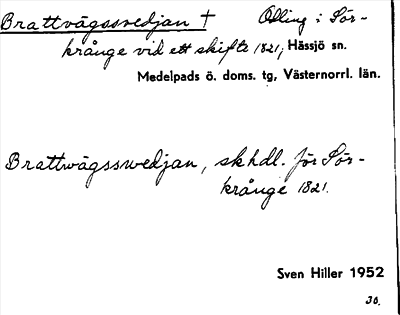 Brattvägssvedjan † Odling i Sör-
krånge vid ett skifte 1821, Hässjö sn.
Medelpads ö. doms. tg, Västernorrl. län.
Brattwägsswedjan, skhdl. för Sör-
krånge 1821.
Sven Hiller 1952
30.